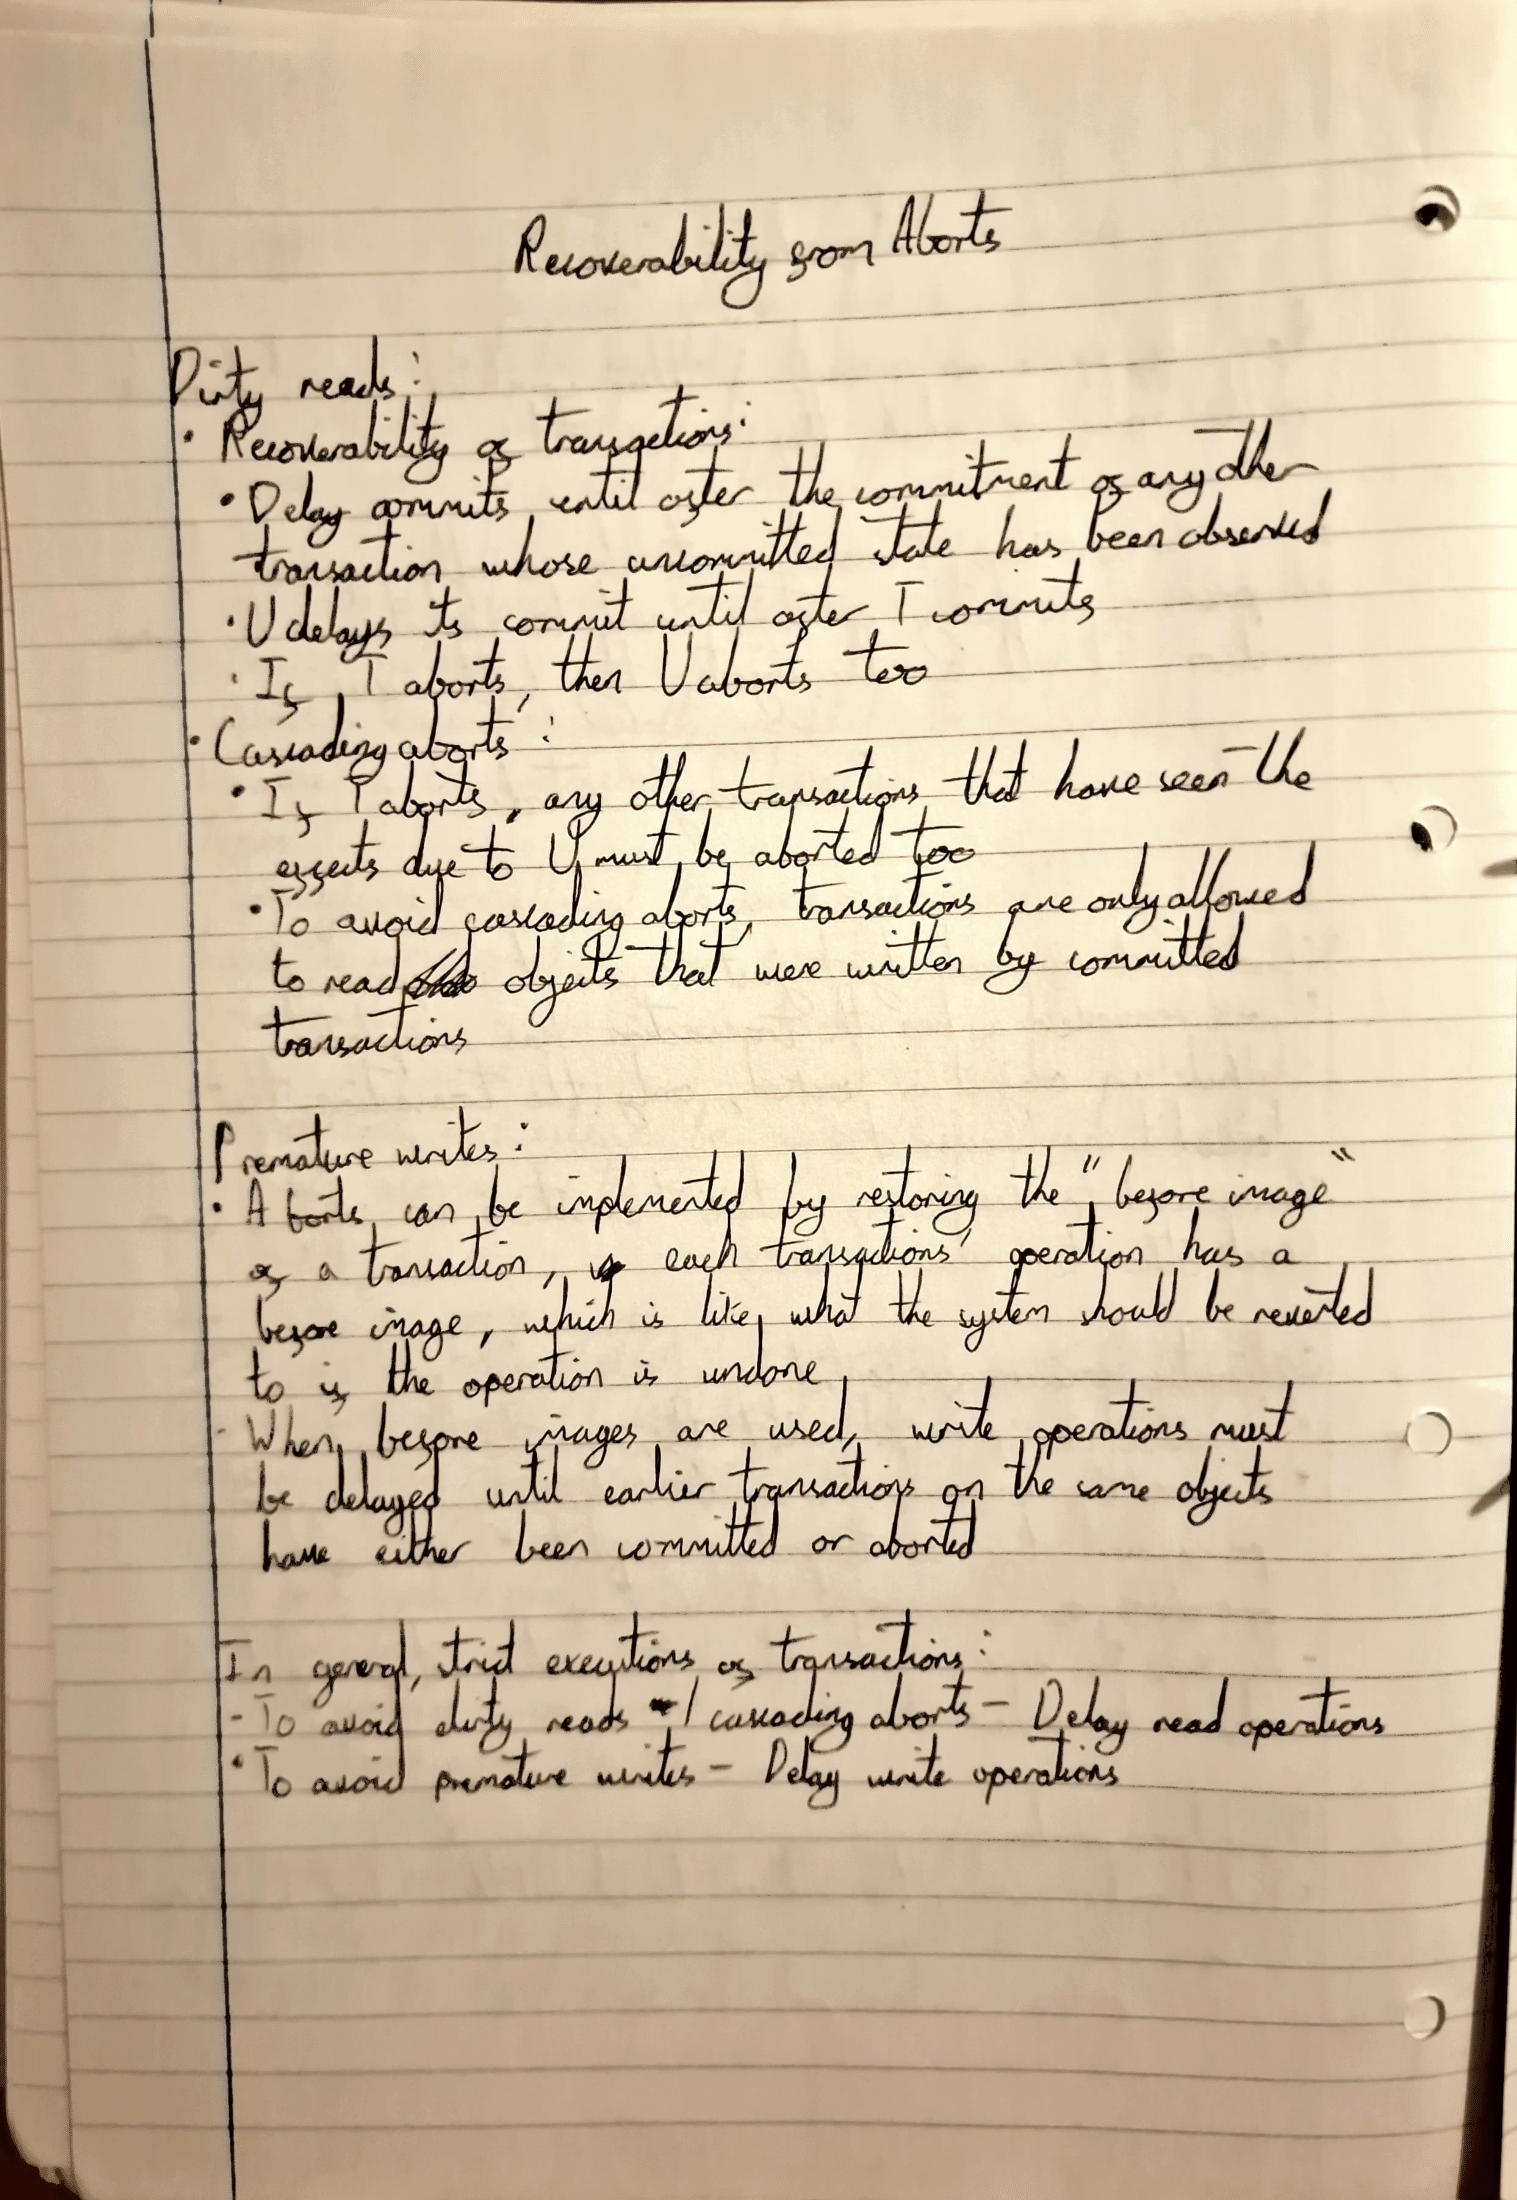 Recoverability from Aborts
Dirty reads:
• Recoverability of transactions:
• Delay commits until after the commitment of any other
transaction whose uncommitted state has been observed
• U delays its commit until after T commits
• If T aborts, then U aborts too
• Cascading aborts:
• If T aborts, any other transactions that have seen the
effects due to U must be aborted too
• To avoid cascading aborts, transactions are only allowed
to read objects that were written by committed
transactions
Premature writes:
• Aborts can be implemented by restoring the "before image"
of a transaction, each transactions' operation has a
before image, which is like what the system should be reverted
to if the operation is undone
- When before images are used, write operations must
be delayed until earlier transactions on the same objects
have either been committed or aborted
In general, strict executions of transactions:
- To avoid dirty reads / cascading aborts - Delay read operations
• To avoid premature writes - Delay write operations